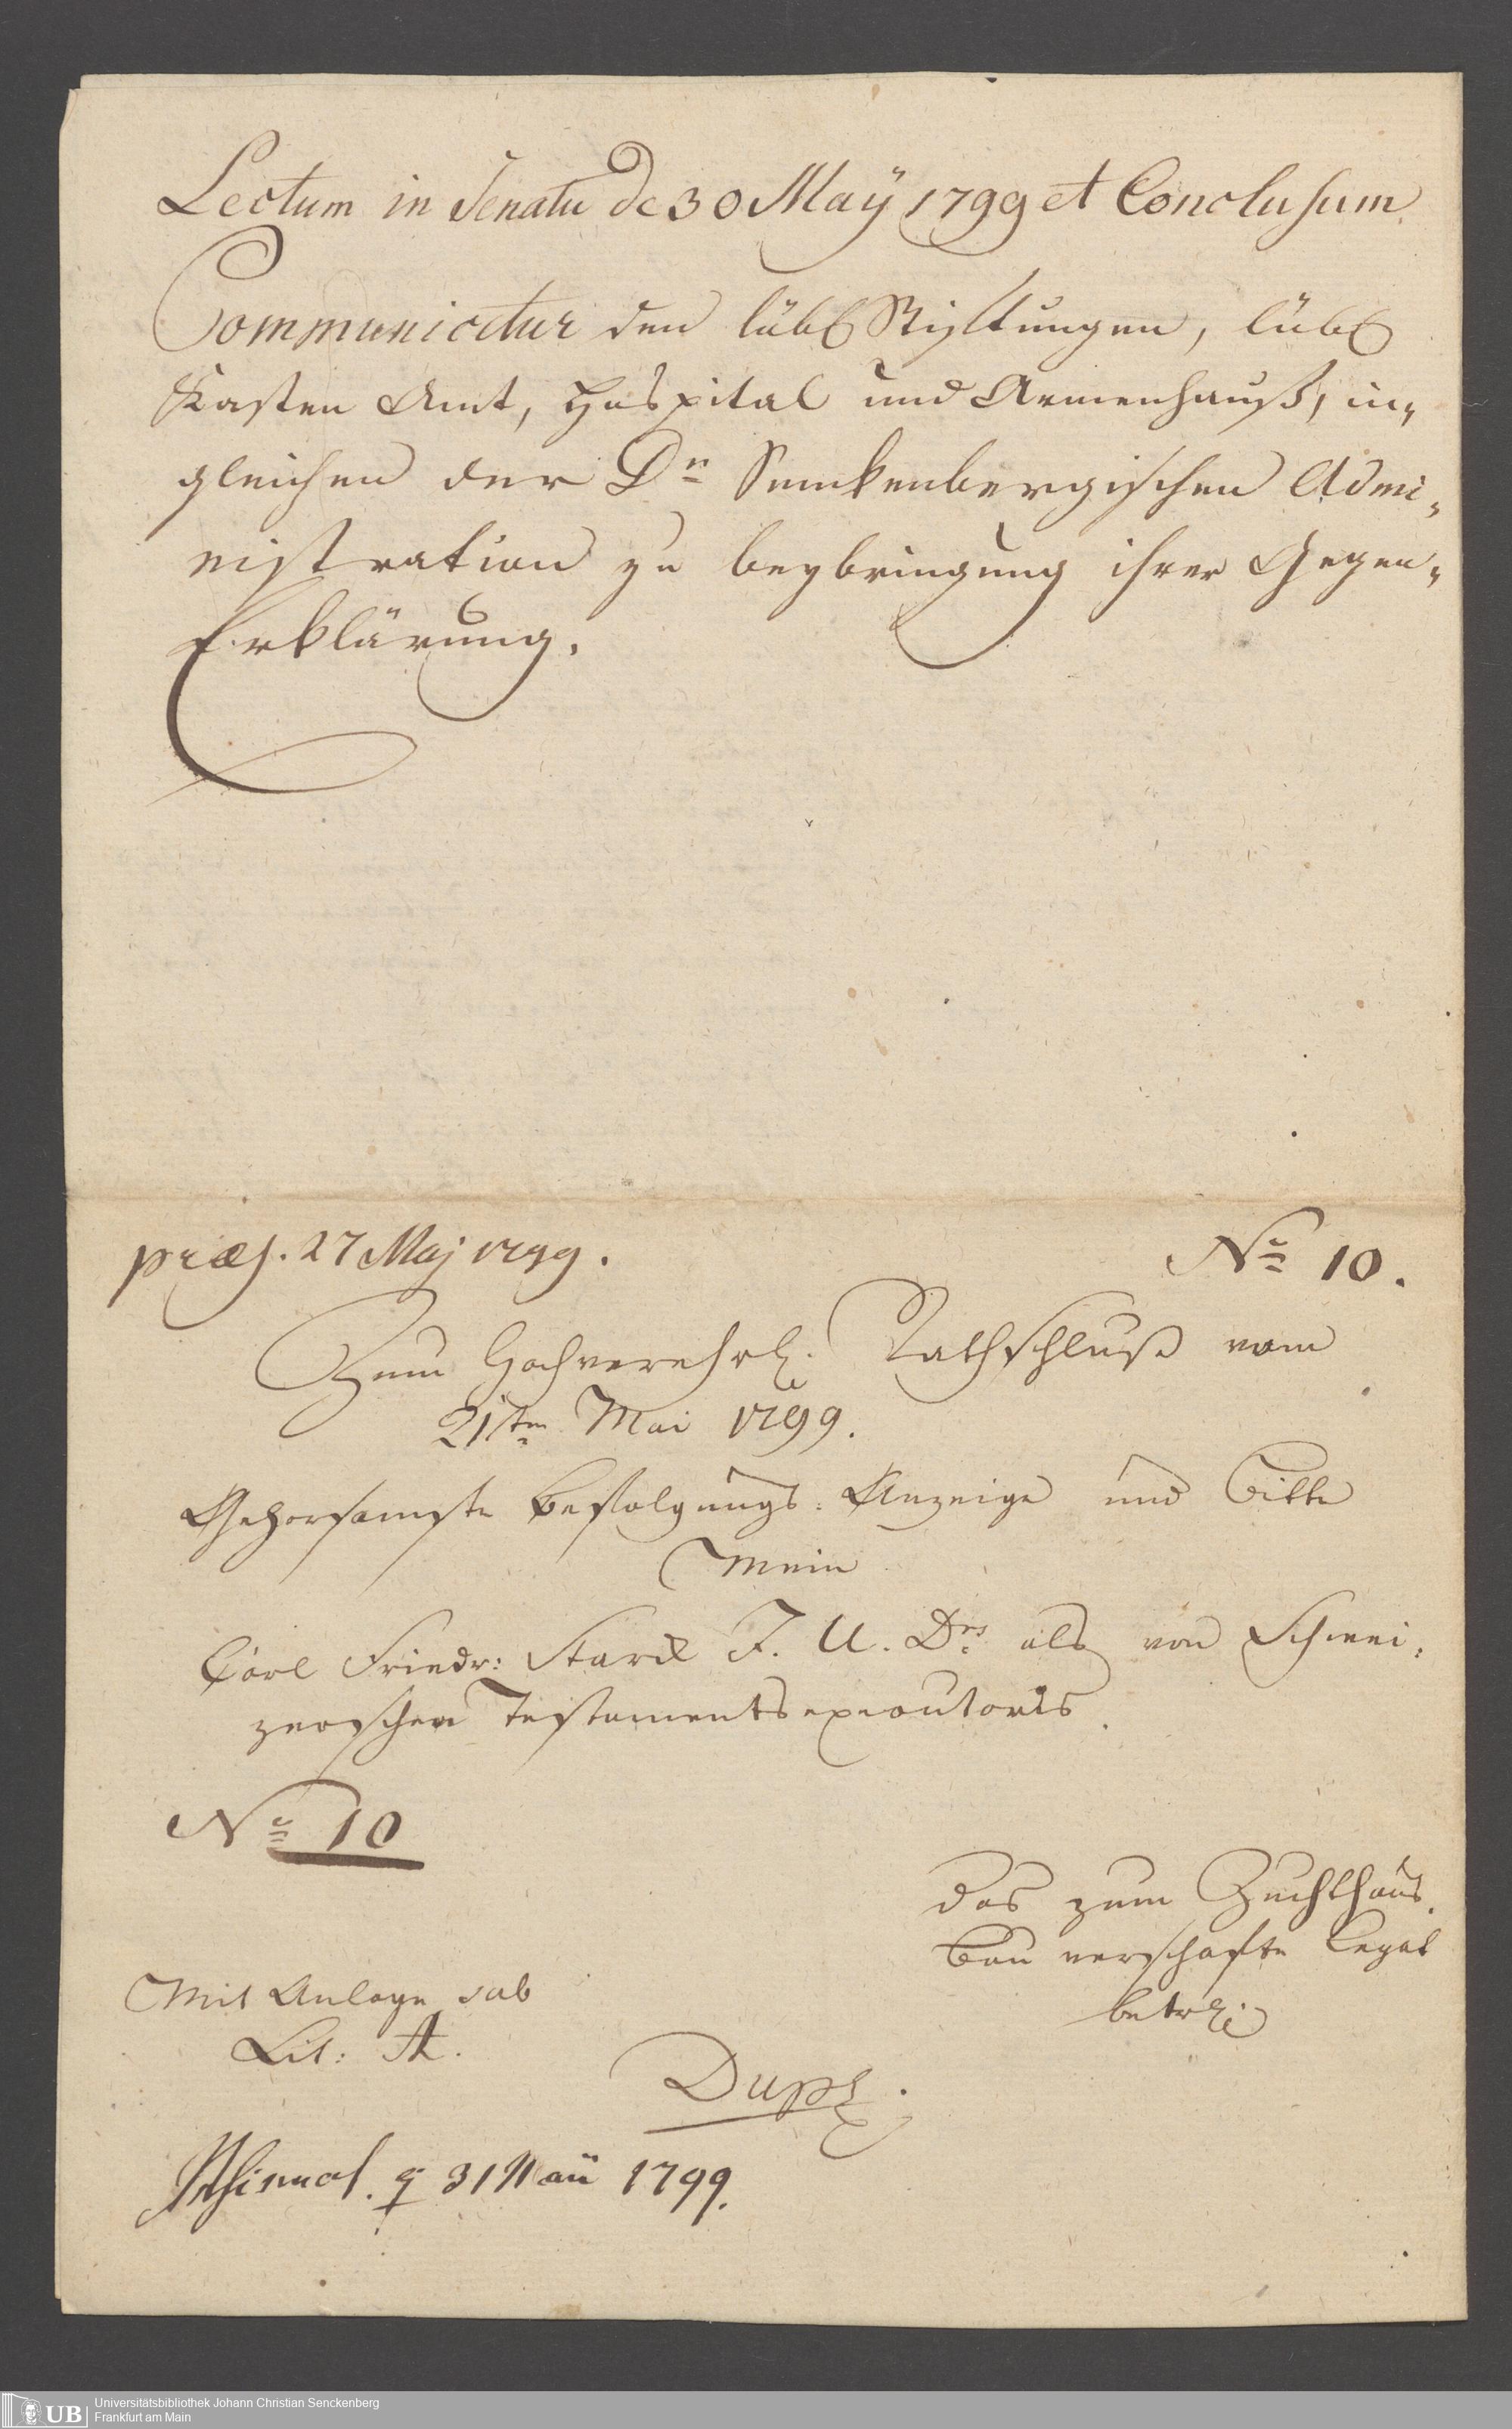 Lectum in Senatu de 30 May 1799 et Conclusum
Communicetur den löbl Stiftungen, löbl
Kasten Amt, Hospital und Armenhauß, in„
gleichen der Dr. Senckenbergischen Admi„
nistration zu beybringung ihrer Gegen„
Erklärung.
præs. 27 Maj 1799.
No 10.
Zum Hochverehrl. Rathschluß vom
21ten Mai 1799.
Gehorsamste Befolgungs-Anzeige und Bitte
Mein
Carl Friedr: Starck J. U. Drs als von Schwei-
zerschen Testamentsexecutoris.
No 10
das zum Zuchthaus
Bau verschafte Legat
betrl.
Mit Anlage sub
Lit: A.
Dupl.
31 Maii 1799.
Universitätsbibliothek Johann Christian Senckenberg
UB
Frankfurt am Main